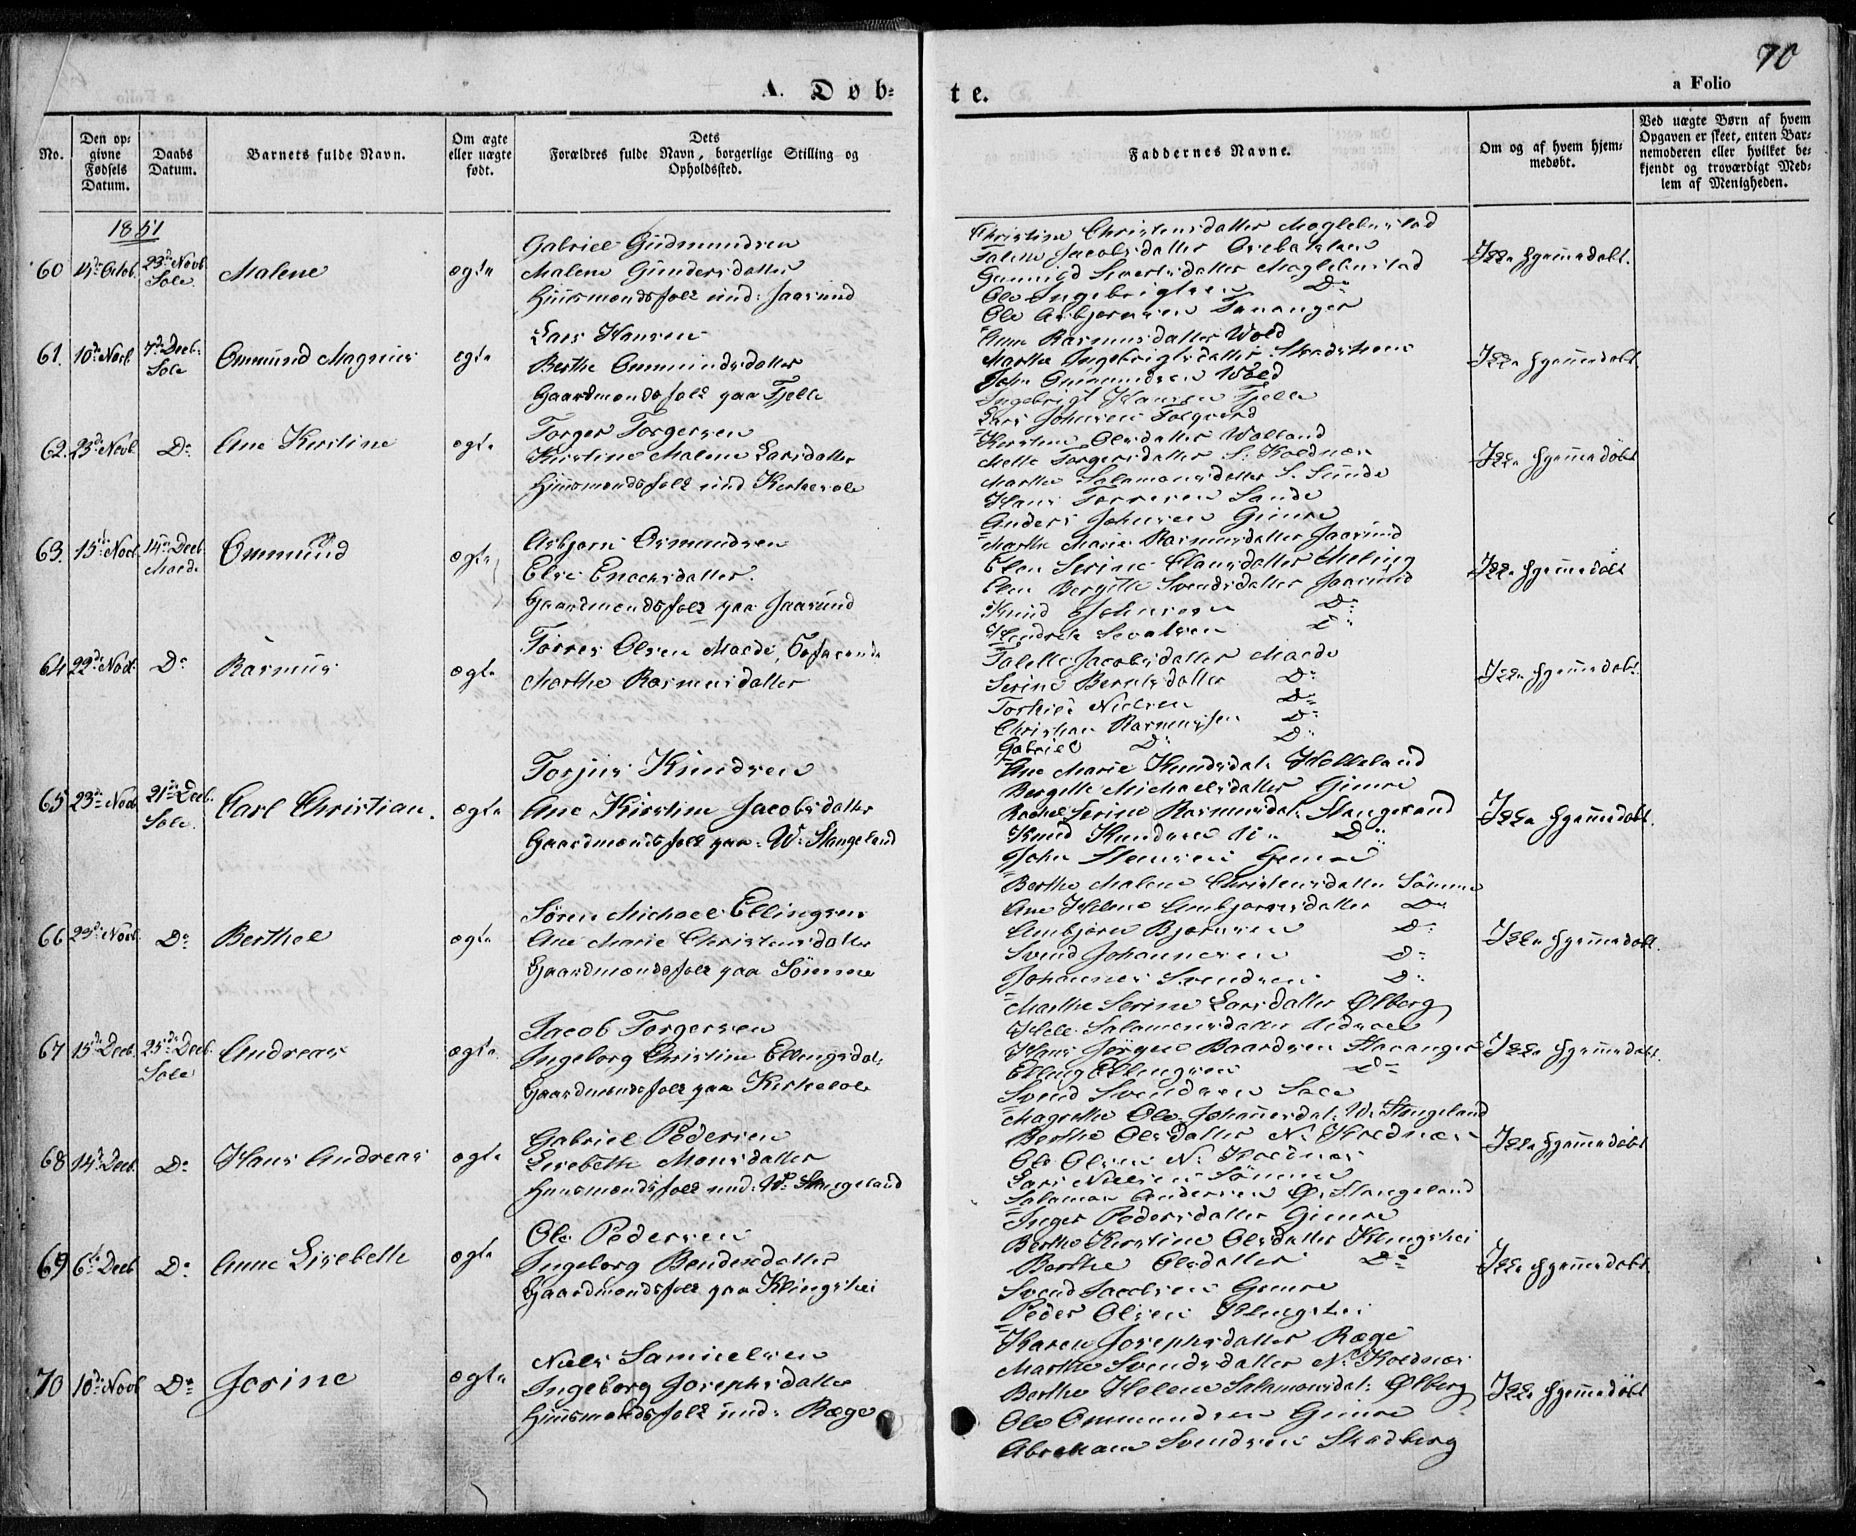 70
A. Døb-
te.
a Folio
No.
Den op-
givne
Fødsels
Datum.
Daabs
Datum.
Barnets fulde Navn.
Om ægte
eller uægte
født.
Dets
Forældres fulde Navn, borgerlige Stilling og
Opholdssted.
Faddernes Navne.
Om og af hvem hjem-
medøbt.
Ved uægte Børn af hvem
Opgaven er skeet, enten Bar-
nemoderen eller hvilket be-
kjendt og troværdigt Med-
lem af Menigheden.
1851
60
14de Octob.
23de Novb.
Sole
Malene
ægte
Gabriel Gudmundsen
Malene Gundersdatter
Huusmandsfolk und: Jaasund
Christine Christensdatter Maglebustad
Jacobsdatter
Sivertsdatter Maglebustad
Ole Ingebrigtsen Do
Ole Asbjørnsen Tananger
Ikke hjemmedøbt.
61.
10de Novb.
7de Decb.
Sole
Ommund Magnus
ægte
Lars Hansen
Berthe Ommundsdatter
Gaardmandsfolk paa Fjelle
Anne Rasmusdatter Wold
Marthe Ingebrigtsdatter
John Ommundsen Wold
Ingebrigt Hansen Fjelle
Lars Johnsen
Ikke hjemmedøbt.
62.
23de Novb.
Do
Ane Kirstine
ægte
Torger Torgersen
Kirstine Malene Larsdatter
Huusmandsfolk und Kirkesole
Kirstine Olsdatter
Mette Torgersdatter S. Koldnæs
Marthe Salamonsdatter S. Sunde
Hans Torresen Sande
Anders Johnsen Gimre
Ikke hjemmedøbt
63.
15de Novb.
14de Decb.
Malde
Ommund
ægte
Asbjørn Osmundsen
Else Enochsdatter.
Gaardmandsfolk paa Jaasund
Marthe Marie Rasmusdatter Jaasund
Elen Serine Clausdatter Meling
Elen Bergitte Svendsdatter Jaasund
Knud Johnsen Do
Hendrik Sevalsen Do
Ikke hjemmedøbt
64
22de Novb.
Do
Rasmus
ægte
Torres Olsen Malde,
Marthe Rasmusdatter
Talette Jacobsdatter Malde
Serine Berntsdatter Do
Torkild Nielsen Do
Christian Rasmussen Do
Gabriel Do Do
Ikke hjemmedøbt.
65
23de Novb.
21de Decb.
Sole.
Carl Christian.
ægte
Torjus Knudsen
Ane Kirstine Jacobsdatter
Gaardmandsfolk paa W. Stangeland
Ane Marie Knudsdat. Helleland
Bergitte Michaelsdatter Gimre
Rachel Serine Rasmusdat. Stangeland
Knud Knudsen Do
John Gimre
Ikke hjemmedøbt.
66
23de Novb.
Do
Berthel
ægte
Søren Michael Ellingsen
Ane Marie Christensdatter
Gaardmandsfolk paa Sömme
Berthe Malene Christensdatter Sömme
Ane Helene Ambjørnsdatter Do
Ambjørn Bjørnsen Do
Svend Johannesen Do
Johannes Svendsen Do
Ikke hjemmedøbt.
67
15de Decb.
25de Decb.
Sole
Andreas
ægte.
Jacob Torgersen
Ingeborg Christine Ellingsdat.
Gaardmandsfolk paa Kirkesole
Marthe Serine Larsdatter Ølberg
Salamonsdatter
Hans Jörgen Baardsen Stavanger
Elling Ellingsen Do
Svend Svendsen Sole
Ikke hjemmedøbt.
68
14de Decb.
Do
Hans Andreas
ægte
Gabriel Pedersen
Lisebeth Monsdatter
Huusmandsfolk und: W. Stangeland
Magrethe Johannesdat. W. Stangeland
Berthe Olsdatter N. Koldnæs
Ole Olsen N. Koldnæs
Lars Nielsen Sömme
Salamon Andersen Ø. Stangeland
Ikke hjemmedøbt
69
6te Decb
Do
Anne Lisebeth
ægte
Ole Pedersen
Ingeborg Bendixdatter
Gaardmandsfolk paa Klingshei
Inger Pedersdatter Gimre
Berthe Kirstine Olsdatter Klingshei
Berthe Olsdatter Do
Svend Jacobsen Gimre
Peder Olsen Klingshei
Ikke hjemmedøbt.
70
10de Novb
Do
Josine
ægte
Niels Samuelsen
Ingeborg Josephsdatter
Huusmandsfolk und: Ræge
Karen Josephsdatter Ræge
Marthe Svendsdatter N. Koldnæs
Berthe Helene Salamonsdat. Ølberg
Ole Ommundsen Gimre
Abraham Svendsen Skadberg
Ikke hjemmedøbt